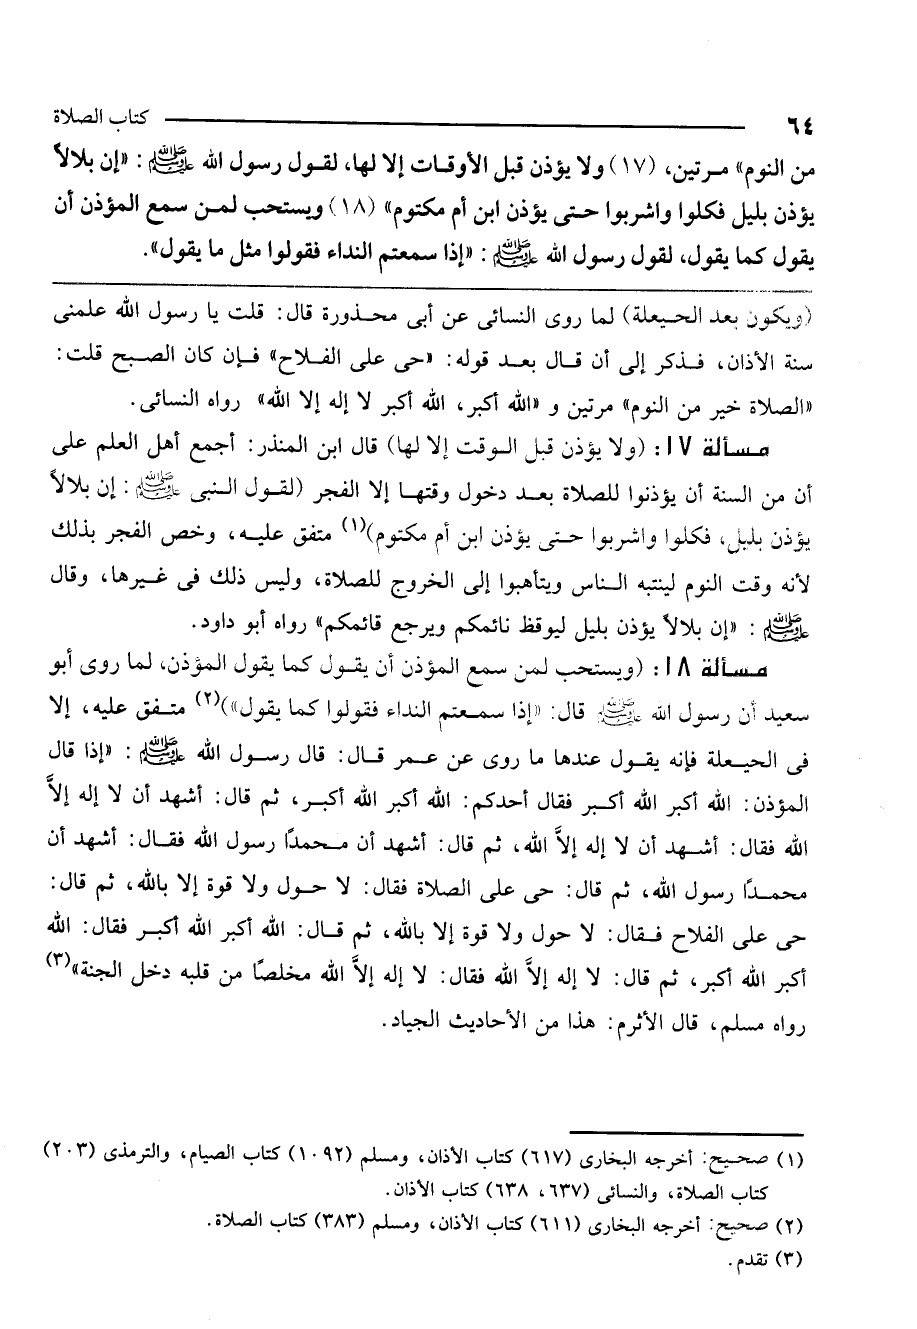 ٦٤ ــــــــــــــــــــ كتاب الصلاة
من النوم» مرتين، (١٧) ولا يؤذن قبل الأوقات إلا لها، لقول رسول الله ﷺ : «إن بلالاً
يؤذن بليل فكلوا واشربوا حتى يؤذن ابن أم مكتوم» (١٨) ويستحب لمن سمع المؤذن أن
يقول كما يقول، لقول رسول الله ﷺ : «إذا سمعتم النداء فقولوا مثل ما يقول».
(ويكون بعد الحيعلة) لما روى النسائى عن أبى محذورة قال: قلت يا رسول الله علمنى
سنة الأذان، فذكر إلى أن قال بعد قوله: «حى على الفلاح» فإن كان الصبح قلت:
«الصلاة خير من النوم» مرتين و «الله أكبر، الله أكبر لا إله إلا الله» رواه النسائى.
مسألة ١٧: (ولا يؤذن قبل الوقت إلا لها) قال ابن المنذر: أجمع أهل العلم على
أن من السنة أن يؤذنوا للصلاة بعد دخول وقتها إلا الفجر (لقول النبى ﷺ : إن بلالاً
يؤذن بليل، فكلوا واشربوا حتى يؤذن ابن أم مكتوم)(١) متفق عليه، وخص الفجر بذلك
لأنه وقت النوم لينتبه الناس ويتأهبوا إلى الخروج للصلاة، وليس ذلك فى غيرها، وقال
ﷺ : «إن بلالاً يؤذن بليل ليوقظ نائمكم ويرجع قائمكم» رواه أبو داود.
مسألة ١٨: (ويستحب لمن سمع المؤذن أن يقول كما يقول المؤذن، لما روى أبو
سعيد أن رسول الله ﷺ قال: «إذا سمعتم النداء فقولوا كما يقول»)(٢) متفق عليه، إلا
فى الحيعلة فإنه يقول عندها ما روى عن عمر قال: قال رسول الله ﷺ : «إذا قال
المؤذن: الله أكبر الله أكبر فقال أحدكم: الله أكبر الله أكبر، ثم قال: أشهد أن لا إله إلاَّ
الله فقال: أشهد أن لا إله إلاَّ الله، ثم قال: أشهد أن محمدًا رسول الله فقال: أشهد أن
محمدًا رسول الله، ثم قال: حى على الصلاة فقال: لا حول ولا قوة إلا بالله، ثم قال:
حى على الفلاح فقال: لا حول ولا قوة إلا بالله، ثم قال: الله أكبر الله أكبر فقال: الله
أكبر الله أكبر، ثم قال: لا إله إلاَّ الله فقال: لا إله إلاَّ الله مخلصًا من قلبه دخل الجنة»(٣)
رواه مسلم، قال الأثرم: هذا من الأحاديث الجياد.
(١) صحيح: أخرجه البخارى (٦١٧) كتاب الأذان، ومسلم (١٠٩٢) كتاب الصيام، والترمذى (٢٠٣)
كتاب الصلاة، والنسائى (٦٣٧، ٦٣٨) كتاب الأذان.
(٢) صحيح: أخرجه البخارى (٦١١) كتاب الأذان، ومسلم (٣٨٣) كتاب الصلاة.
(٣) تقدم.